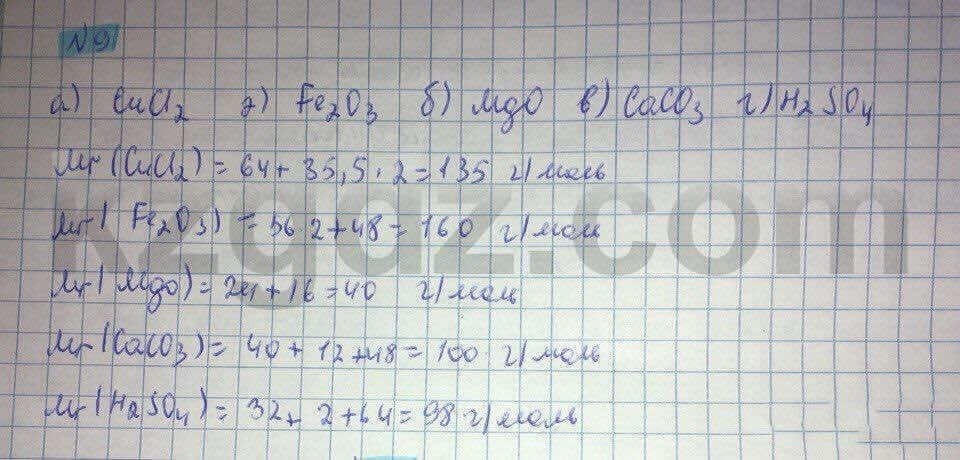 №9
а) CuCl2 д) Fe2O3 б) MgO в) CaCO3 г) H2SO4
Mr (CuCl2) = 64 + 35,5 · 2 = 135 г/моль
Mr (Fe2O3) = 56 · 2 + 48 = 160 г/моль
Mr (MgO) = 24 + 16 = 40 г/моль
Mr (CaCO3) = 40 + 12 + 48 = 100 г/моль
Mr (H2SO4) = 32 + 2 + 64 = 98 г/моль
kzgdz.com